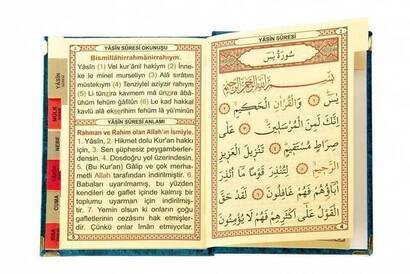 YÂSÎN SÛRESİ OKUNUŞU
Bismillâhirrahmânirrahıym.
Yâsîn (1) Vel kur'ânil hakiym (2) İnne-
ke le minel murseliyn (3) Alâ sırâtım
müstekıym (4) Tenziylel aziyzir rahıym
(5) Li tünzira kavmem mâ ünzira âbâ-
ühüm fehüm gâfilûn (6) Le kad hakkal
kavlü alâ ekserihim fehüm lâ yü'minûn
YÂSÎN SÛRESİ ANLAMI
Rahman ve Rahim olan Allah'ın İsmiyle.
1. Yâsîn, 2. Hikmet dolu Kur'an hakkı
için, 3. Sen şüphesiz peygamberler-
densin. 4. Dosdoğru yol üzerindesin.
5. (Bu Kur'an) Gâlip ve çok merha-
metli Allah tarafından indirilmiştir. 6.
Babaları uyarılmamış, bu yüzden
kendileri de gaflet içinde kalmış bir
toplumu uyarman için indirilmiştir.
7. Yemin olsun ki onların çoğu
gafletlerinin cezasını hak etmişler-
dir. Çünkü onlar İman etmiyorlar.
YÂSÎN
MÜLK
NEBE
CUMA
YÂSÎN SÛRESİ
سُورَةُ يٰسٓ
بِسْمِ اللهِ الرَّحْمٰنِ الرَّحِيمِ
يٰسٓ ۝١ وَالْقُرْاٰنِ الْحَكِيمِ ۝٢
اِنَّكَ لَمِنَ الْمُرْسَلِينَ ۝٣ عَلٰى
صِرَاطٍ مُسْتَقِيمٍ ۝٤ تَنْزِيلَ الْعَزِيزِ
الرَّحِيمِ ۝٥ لِتُنْذِرَ قَوْمًا مَٓا اُنْذِرَ
اٰبَٓاؤُهُمْ فَهُمْ غَافِلُونَ ۝٦ لَقَدْ حَقَّ
الْقَوْلُ عَلٰٓى اَكْثَرِهِمْ فَهُمْ لَا يُؤْمِنُونَ
4